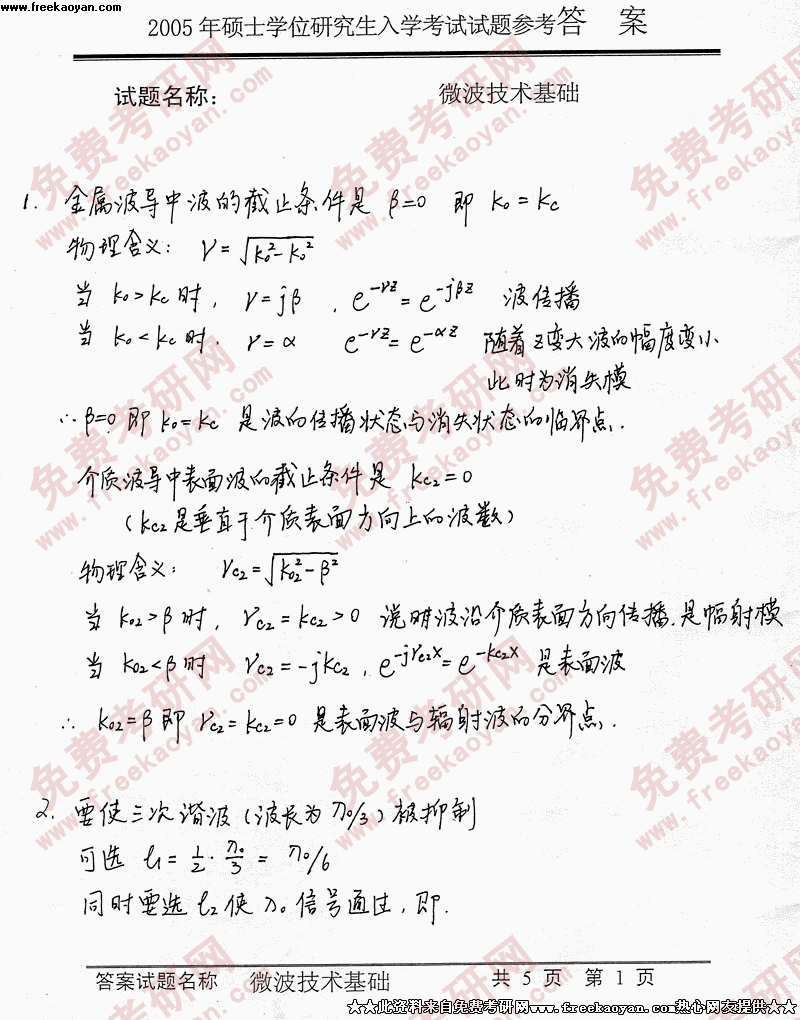 www.freekaoyan.com
2005 年硕士学位研究生入学考试试题参考答 案
试题名称： 微波技术基础
1. 金属波导中波的截止条件是 β=0 即 k₀ = kc
物理含义： γ = √(k₀² - k₀²)
当 k₀ > kc 时， γ = jβ ，e^{-γz} = e^{-jβz} 波传播
当 k₀ < kc 时. γ = α e^{-γz} = e^{-αz} 随着 z 变大波的幅度变小
此时为消失模
∴ β=0 即 k₀ = kc 是波的传播状态与消失状态的临界点.
介质波导中表面波的截止条件是 kc2 = 0
（kc2 是垂直于介质表面方向上的波数）
物理含义： γc2 = √(k02² - β²)
当 k02 > β 时， γc2 = kc2 > 0 说明波沿介质表面方向传播. 是幅射模
当 k02 < β 时 γc2 = -jkc2 ，e^{-jγc2x} = e^{-kc2x} 是表面波
∴ k02 = β 即 γc2 = kc2 = 0 是表面波与辐射波的分界点.
2. 要使三次谐波（波长为 λ₀/3）被抑制
可选 l₁ = 1/2 · λ₀/3 = λ₀/6
同时要选 l₂ 使 λ₀ 信号通过，即.
答案试题名称 微波技术基础 共 5 页 第 1 页
★★此资料来自免费考研网www.freekaoyan.com热心网友提供★★
免费考研网
www.freekaoyan.com